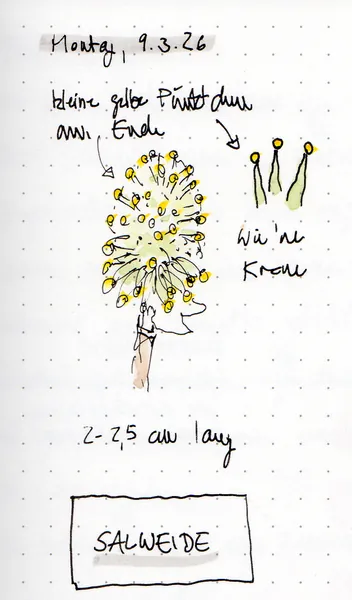 Montag, 9.3.26
kleine gelbe Pünktchen
am Ende
wie 'ne
Krone
2-2,5 cm lang
SALWEIDE